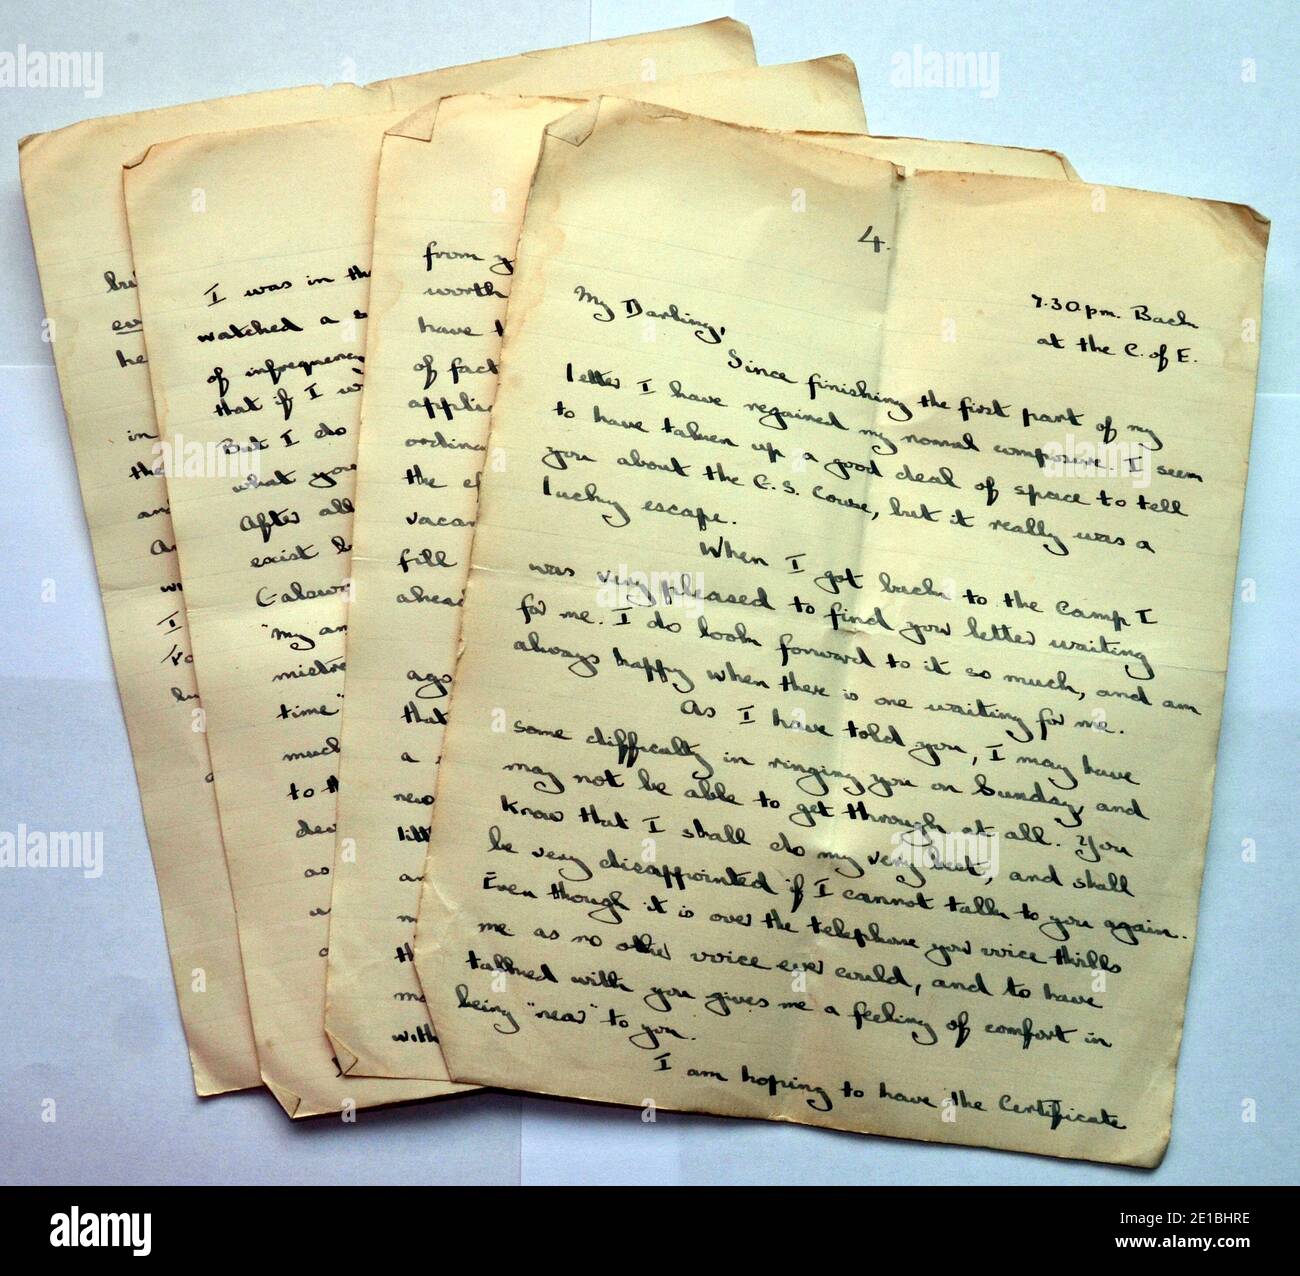 4.
7.30pm. Back
at the C. of E.
My Darling,
Since finishing the first part of my
letter I have regained my normal composure. I seem
to have taken up a good deal of space to tell
you about the C.S. Course, but it really was a
lucky escape.
When I got back to the camp I
was very pleased to find your letter waiting
for me. I do look forward to it so much, and am
always happy when there is one waiting for me.
As I have told you, I may have
some difficulty in ringing you on Sunday, and
may not be able to get through at all. You
know that I shall do my very best, and shall
be very disappointed if I cannot talk to you again.
Even though it is over the telephone your voice thrills
me as no other voice ever could, and to have
talked with you gives me a feeling of comfort in
being "near" to you.
I am hoping to have the Certificate
from y
worth
have t
of fact
applic
ordinar
the ef
vacan
fill
ahead
ago
that
a
new
litt
an
m
th
me
with
I was in the
watched a s
of infrequen
that if I w
But I do
what you
After all
exist b
Galown
"My am
mistre
time"
much
to th
dea
as
bu
ev
he
in
the
an
A
w
I
Yo
bu
alamy
a
alamy
Image ID: 2E1BHRE
www.alamy.com